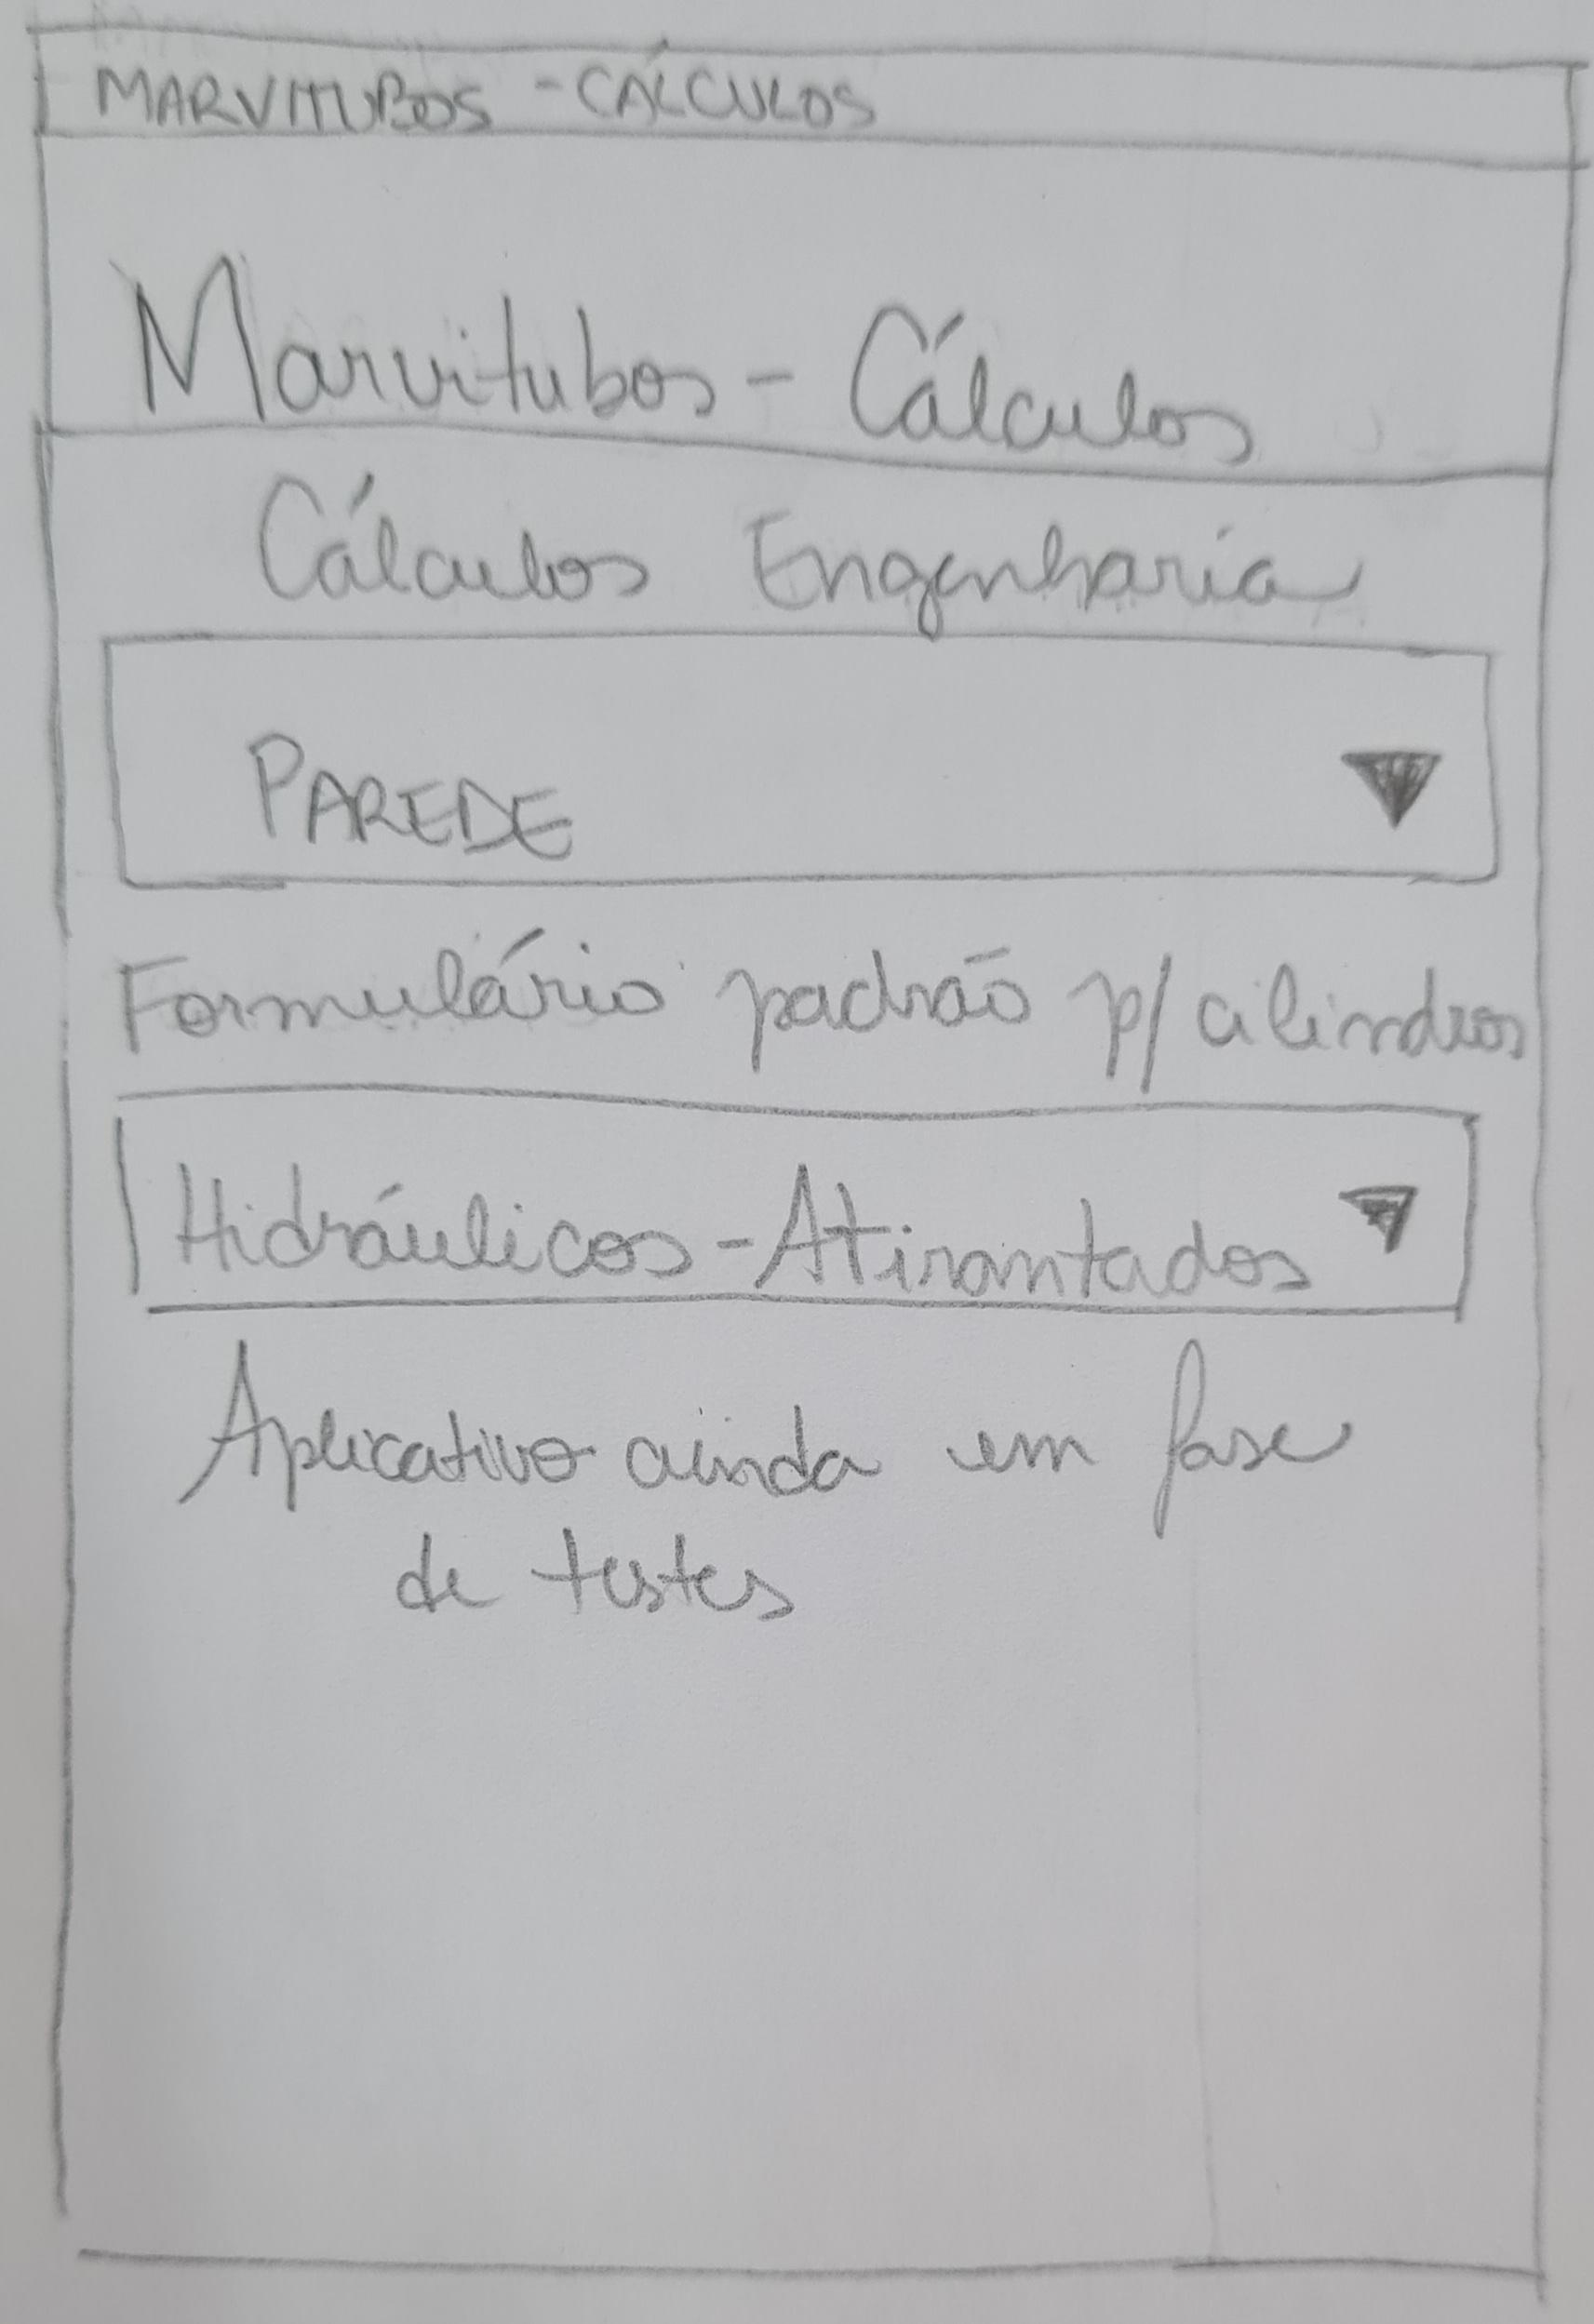 MARVITUBOS - CÁLCULOS
Marvitubos - Cálculos
Cálculos Engenharia
PAREDE
Formulário padrão p/ cilindros
Hidráulicos - Atirantados
Aplicativo ainda em fase
de testes